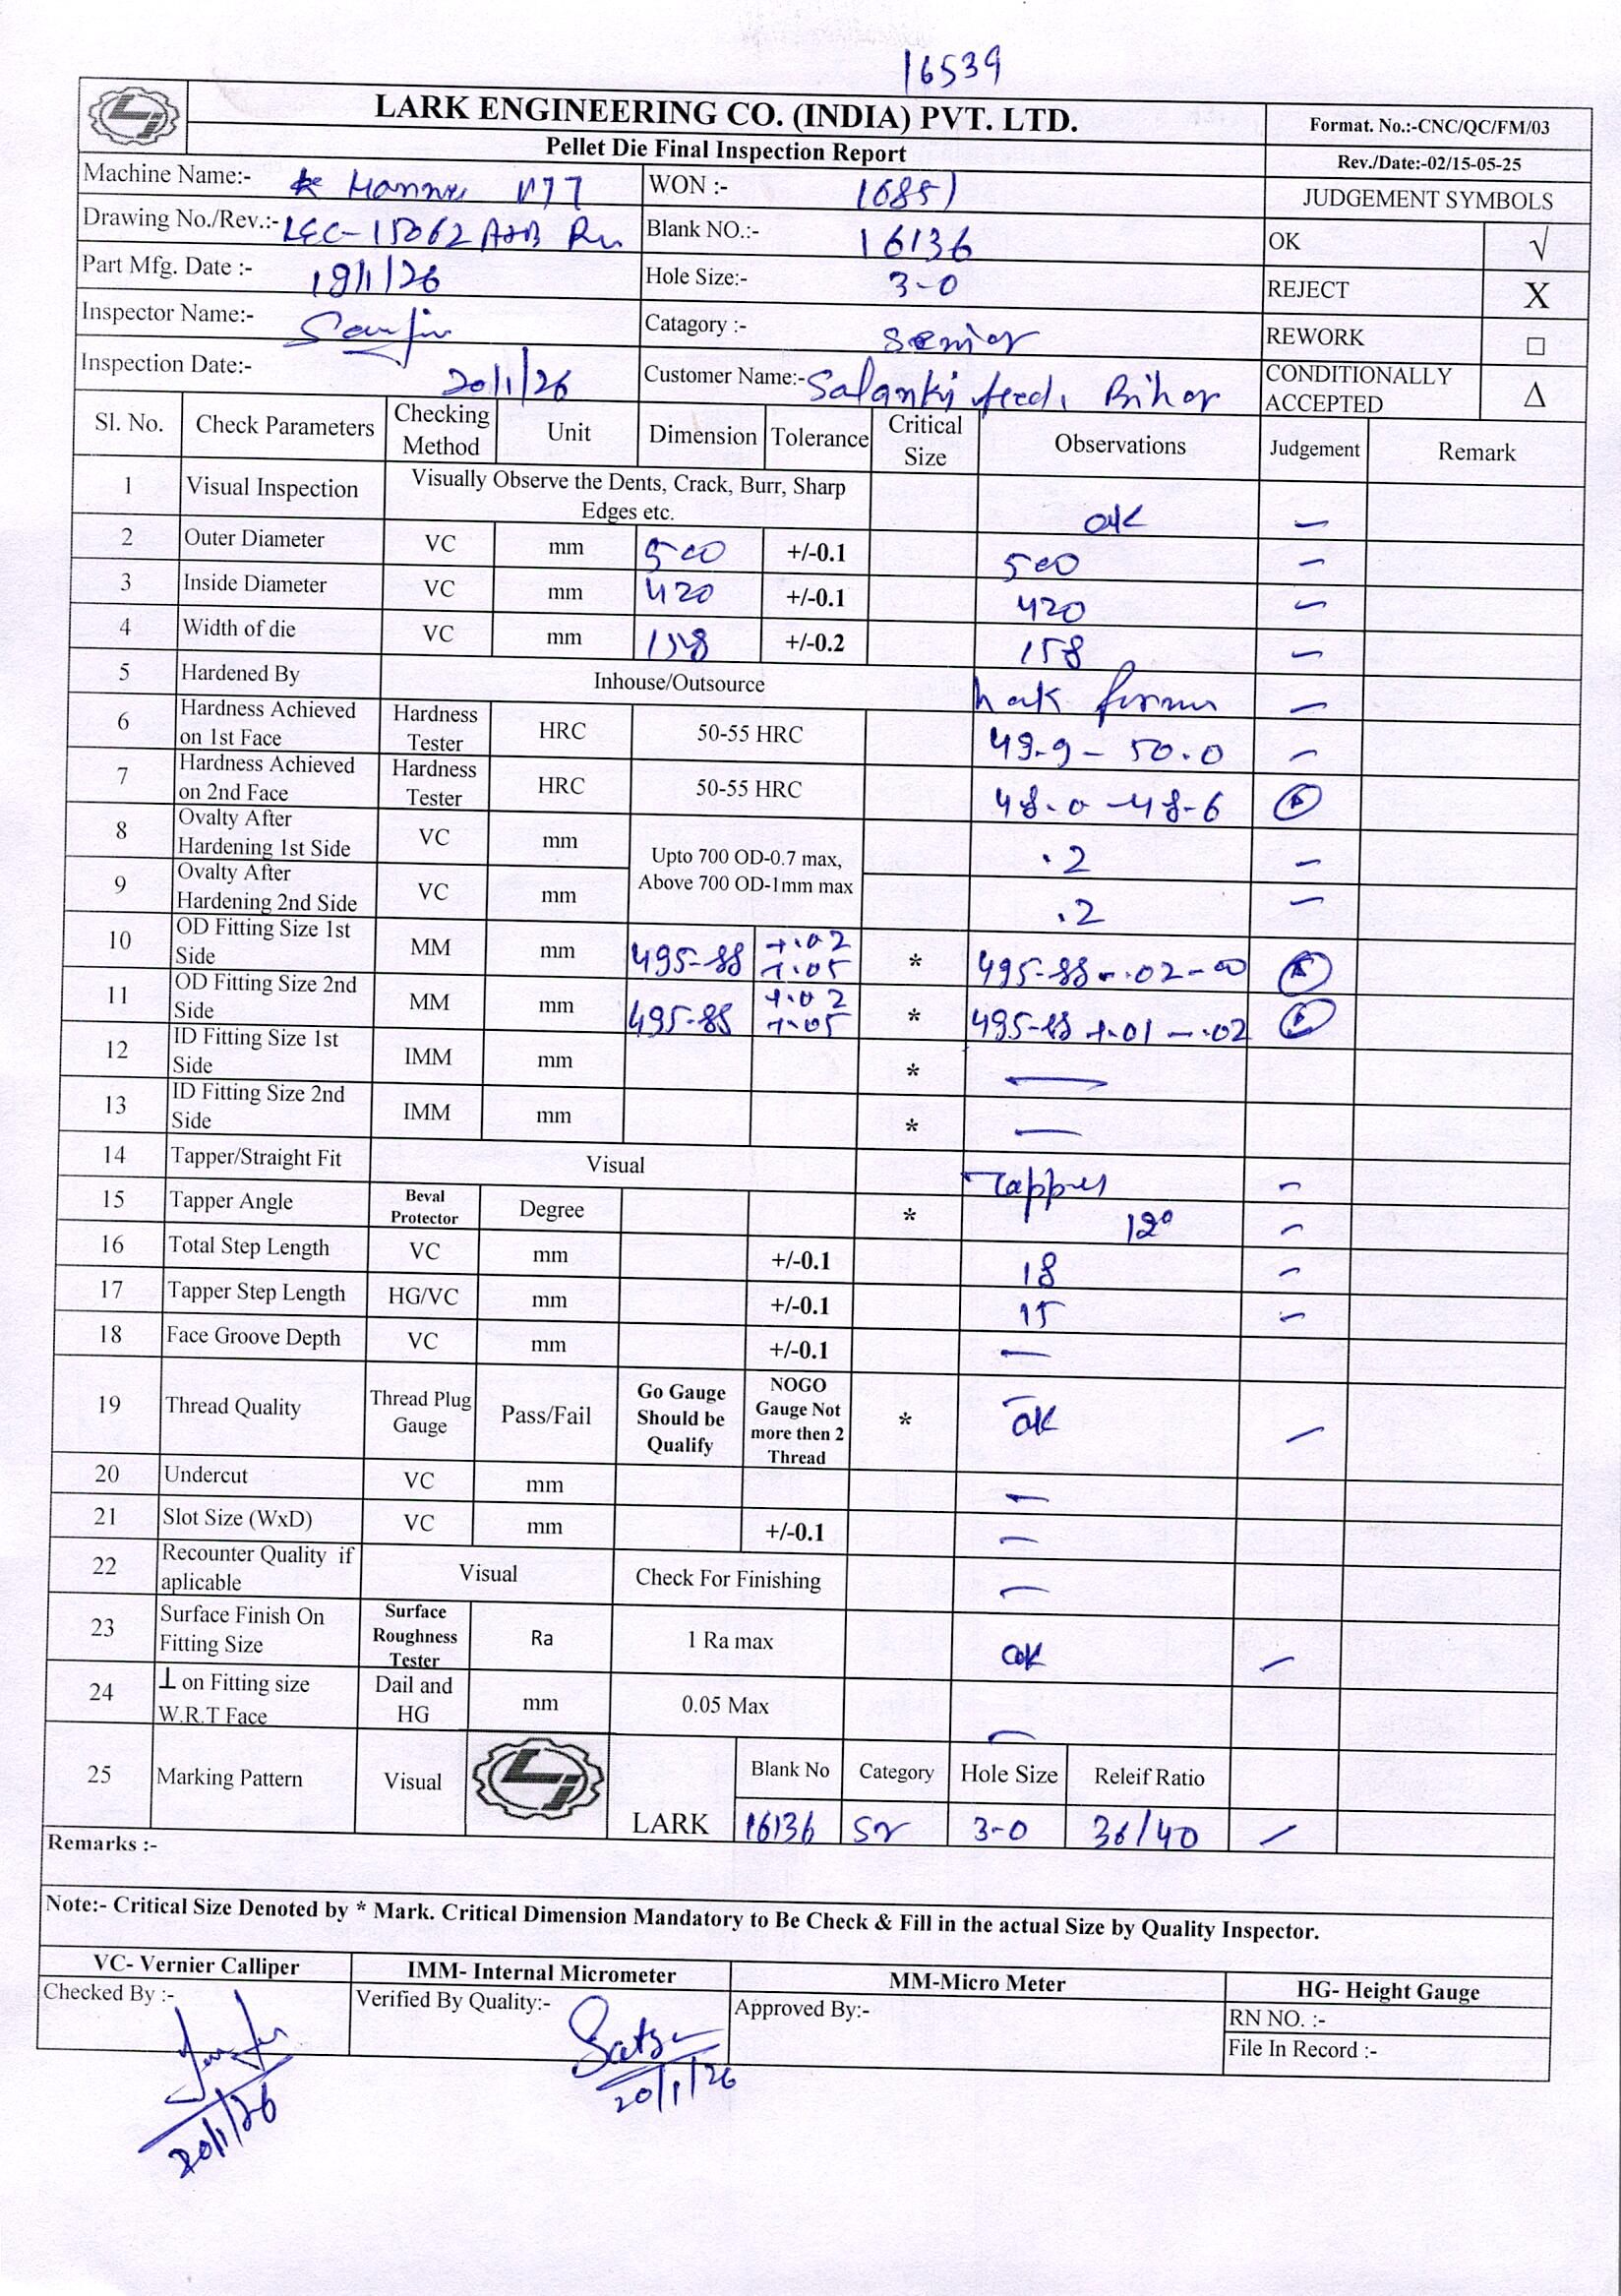 16539
LARK ENGINEERING CO. (INDIA) PVT. LTD.
Format. No.:-CNC/QC/FM/03
Pellet Die Final Inspection Report
Rev./Date:-02/15-05-25
Machine Name:-
WON :- 16851
JUDGEMENT SYMBOLS
Drawing No./Rev.:- LEC-15062 A+B
Blank NO.:- 16136
OK √
Part Mfg. Date :- 19/1/26
Hole Size:- 3-0
REJECT X
Inspector Name:-
Catagory :- Senior
REWORK □
Inspection Date:- 20/1/26
Customer Name:- Salanki feed, Bihar
CONDITIONALLY ACCEPTED Δ
Sl. No. Check Parameters Checking Method Unit Dimension Tolerance Critical Size Observations Judgement Remark
1 Visual Inspection Visually Observe the Dents, Crack, Burr, Sharp Edges etc. ok –
2 Outer Diameter VC mm 500 +/-0.1 500 –
3 Inside Diameter VC mm 420 +/-0.1 420 –
4 Width of die VC mm 158 +/-0.2 158 –
5 Hardened By Inhouse/Outsource –
6 Hardness Achieved on 1st Face Hardness Tester HRC 50-55 HRC 49.9 – 50.0 –
7 Hardness Achieved on 2nd Face Hardness Tester HRC 50-55 HRC 48.0 – 48.6
8 Ovalty After Hardening 1st Side VC mm Upto 700 OD-0.7 max, Above 700 OD-1mm max .2 –
9 Ovalty After Hardening 2nd Side VC mm .2 –
10 OD Fitting Size 1st Side MM mm 495-88 +.02 +.05 * 495-88 -.02-00
11 OD Fitting Size 2nd Side MM mm 495-88 +.02 +.05 * 495-88 +.01 -.02
12 ID Fitting Size 1st Side IMM mm * —
13 ID Fitting Size 2nd Side IMM mm * —
14 Tapper/Straight Fit Visual Tapper –
15 Tapper Angle Beval Protector Degree * 12° –
16 Total Step Length VC mm +/-0.1 18 –
17 Tapper Step Length HG/VC mm +/-0.1 15 –
18 Face Groove Depth VC mm +/-0.1 —
19 Thread Quality Thread Plug Gauge Pass/Fail Go Gauge Should be Qualify NOGO Gauge Not more then 2 Thread * ok –
20 Undercut VC mm —
21 Slot Size (WxD) VC mm +/-0.1 —
22 Recounter Quality if aplicable Visual Check For Finishing —
23 Surface Finish On Fitting Size Surface Roughness Tester Ra 1 Ra max ok –
24 ⊥ on Fitting size W.R.T Face Dail and HG mm 0.05 Max —
25 Marking Pattern Visual LARK Blank No Category Hole Size Releif Ratio
16136 Sr 3-0 36/40 –
Remarks :-
Note:- Critical Size Denoted by * Mark. Critical Dimension Mandatory to Be Check & Fill in the actual Size by Quality Inspector.
VC- Vernier Calliper IMM- Internal Micrometer MM-Micro Meter HG- Height Gauge
Checked By :- Verified By Quality:- Approved By:- RN NO. :-
File In Record :-
20/1/26
20/1/26